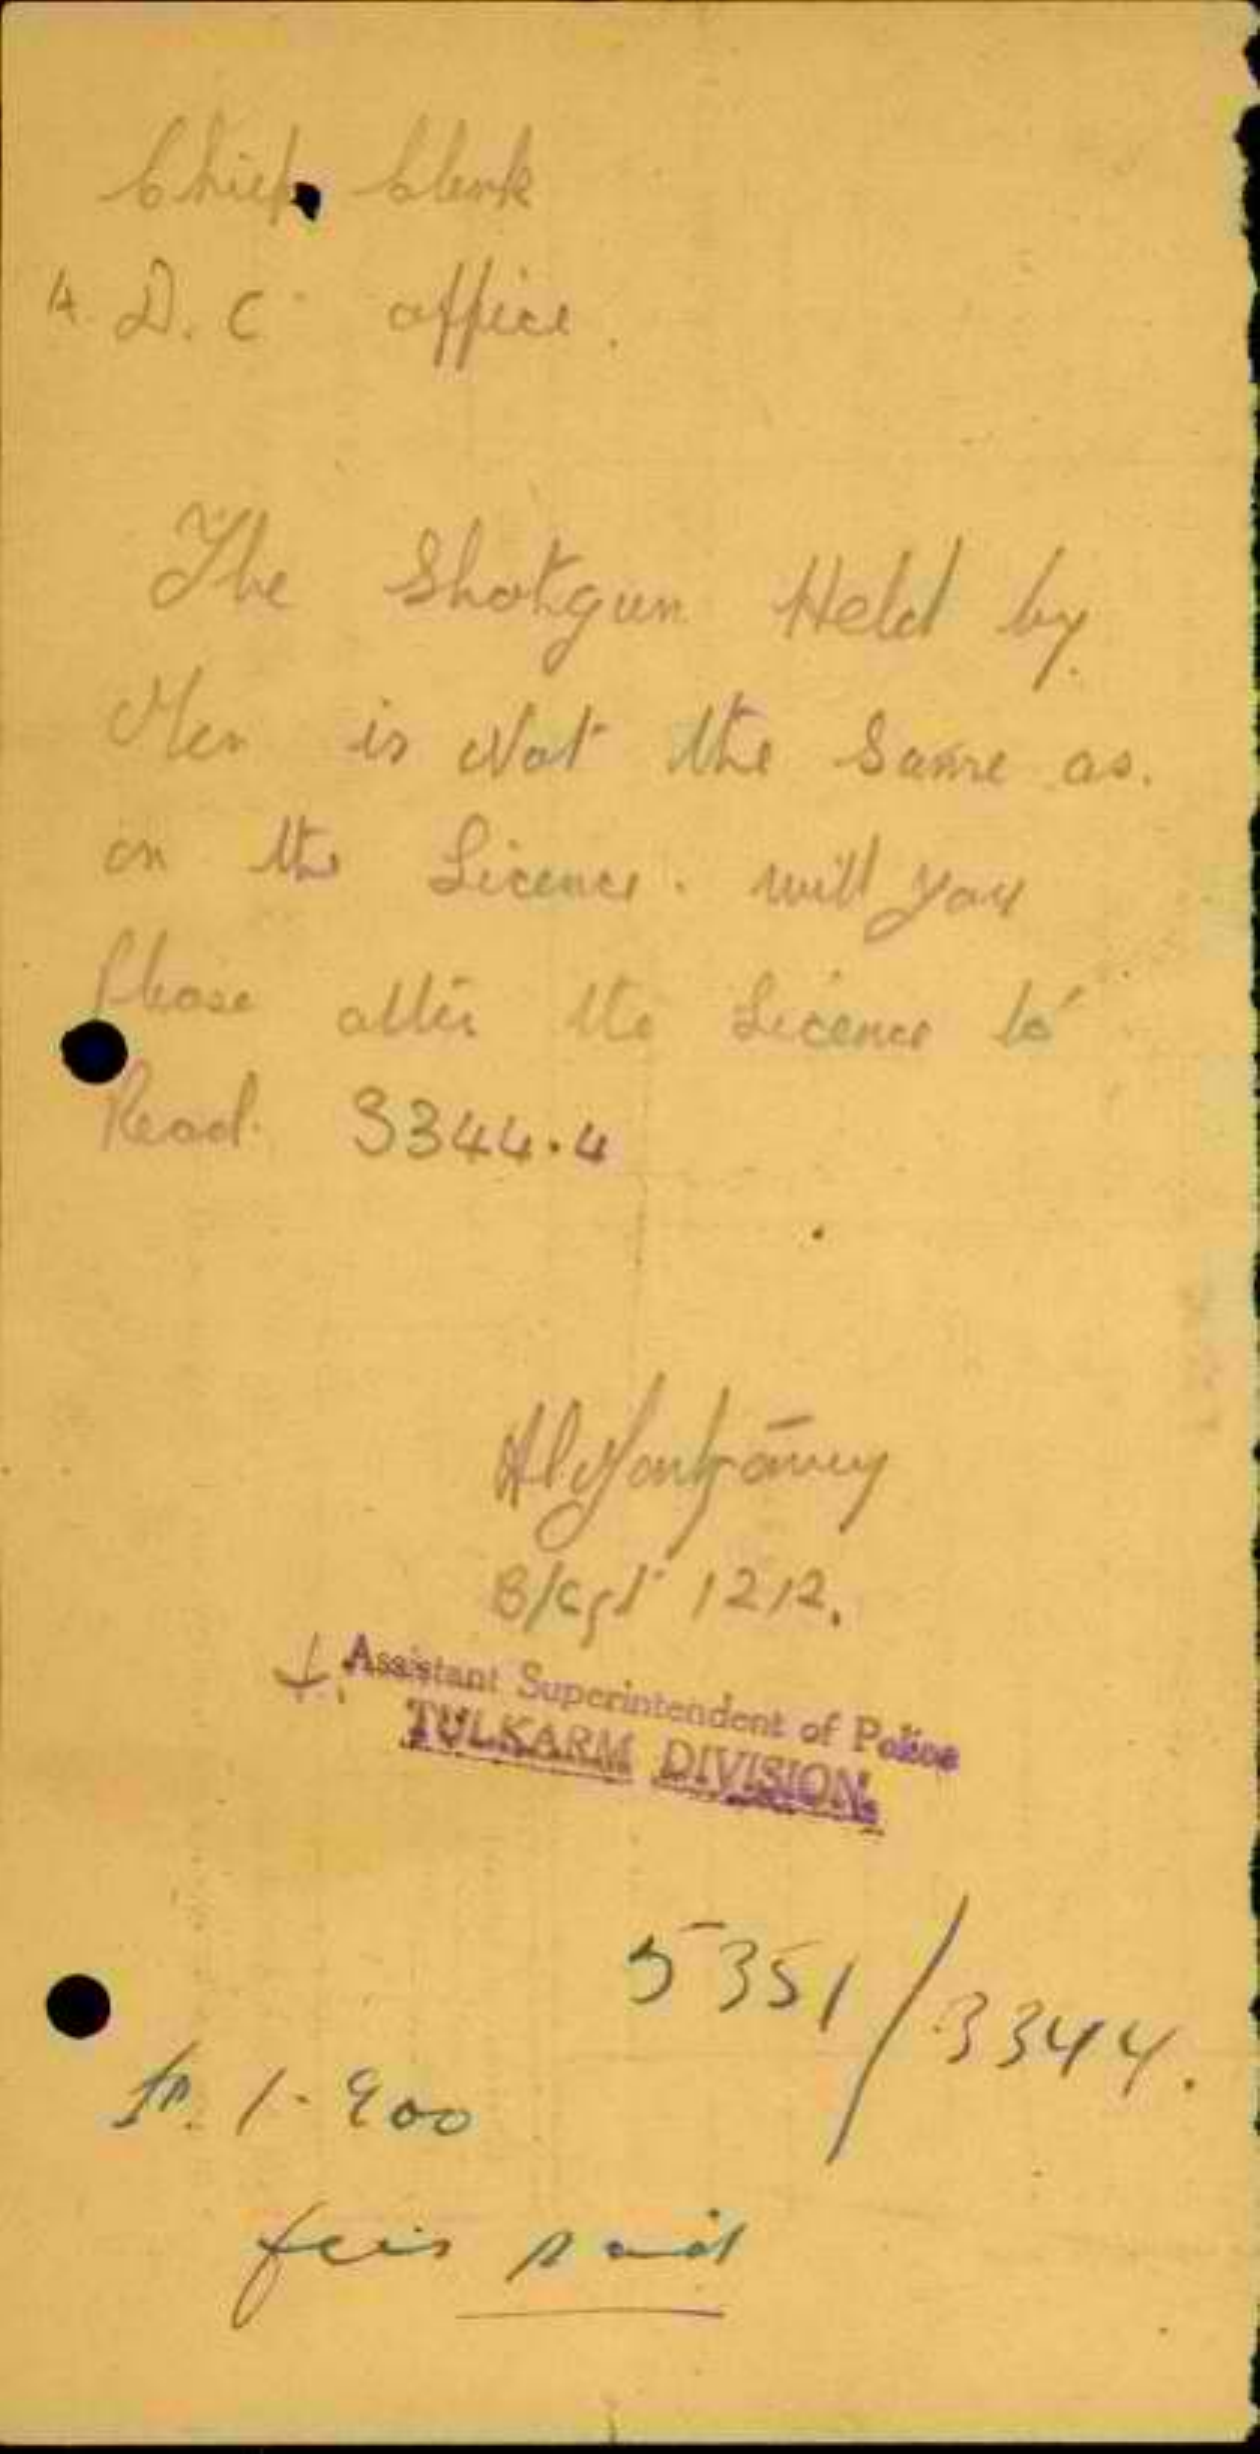 Chief Clerk
A. D. C. office.
The Shotgun Held by
Men is Not the Same as.
on the Licence. will you
Please alter the Licence to
Read. 3344.4
Montgomery
B/Sgt 1212.
f.
Assistant Superintendent of Police
TULKARM DIVISION.
5351/3344.
1.900
fees paid